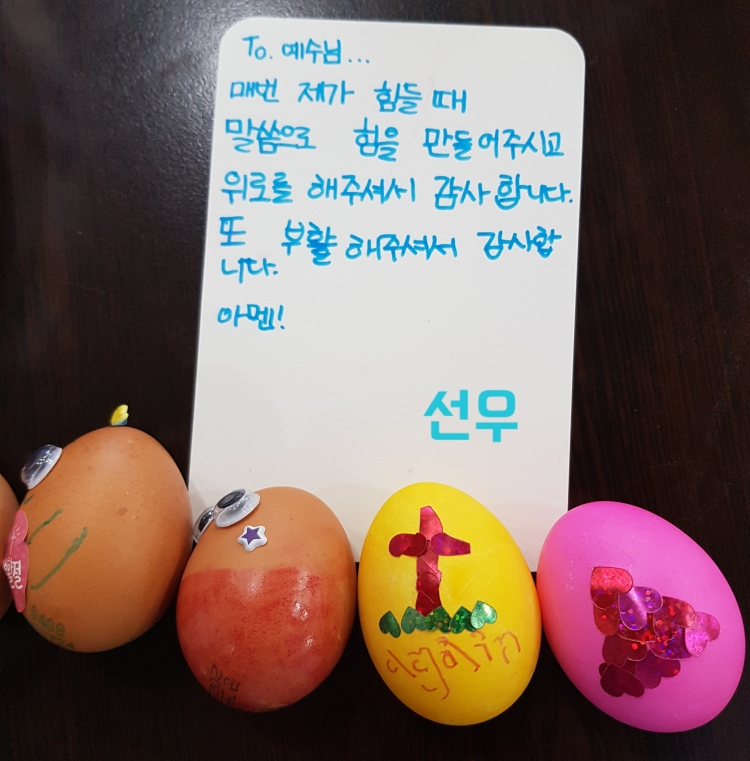 To. 예수님...
매번 제가 힘들 때
말씀으로 힘을 만들어주시고
위로를 해주셔서 감사합니다.
또 부활 해주셔서 감사합
니다.
아멘!
선우